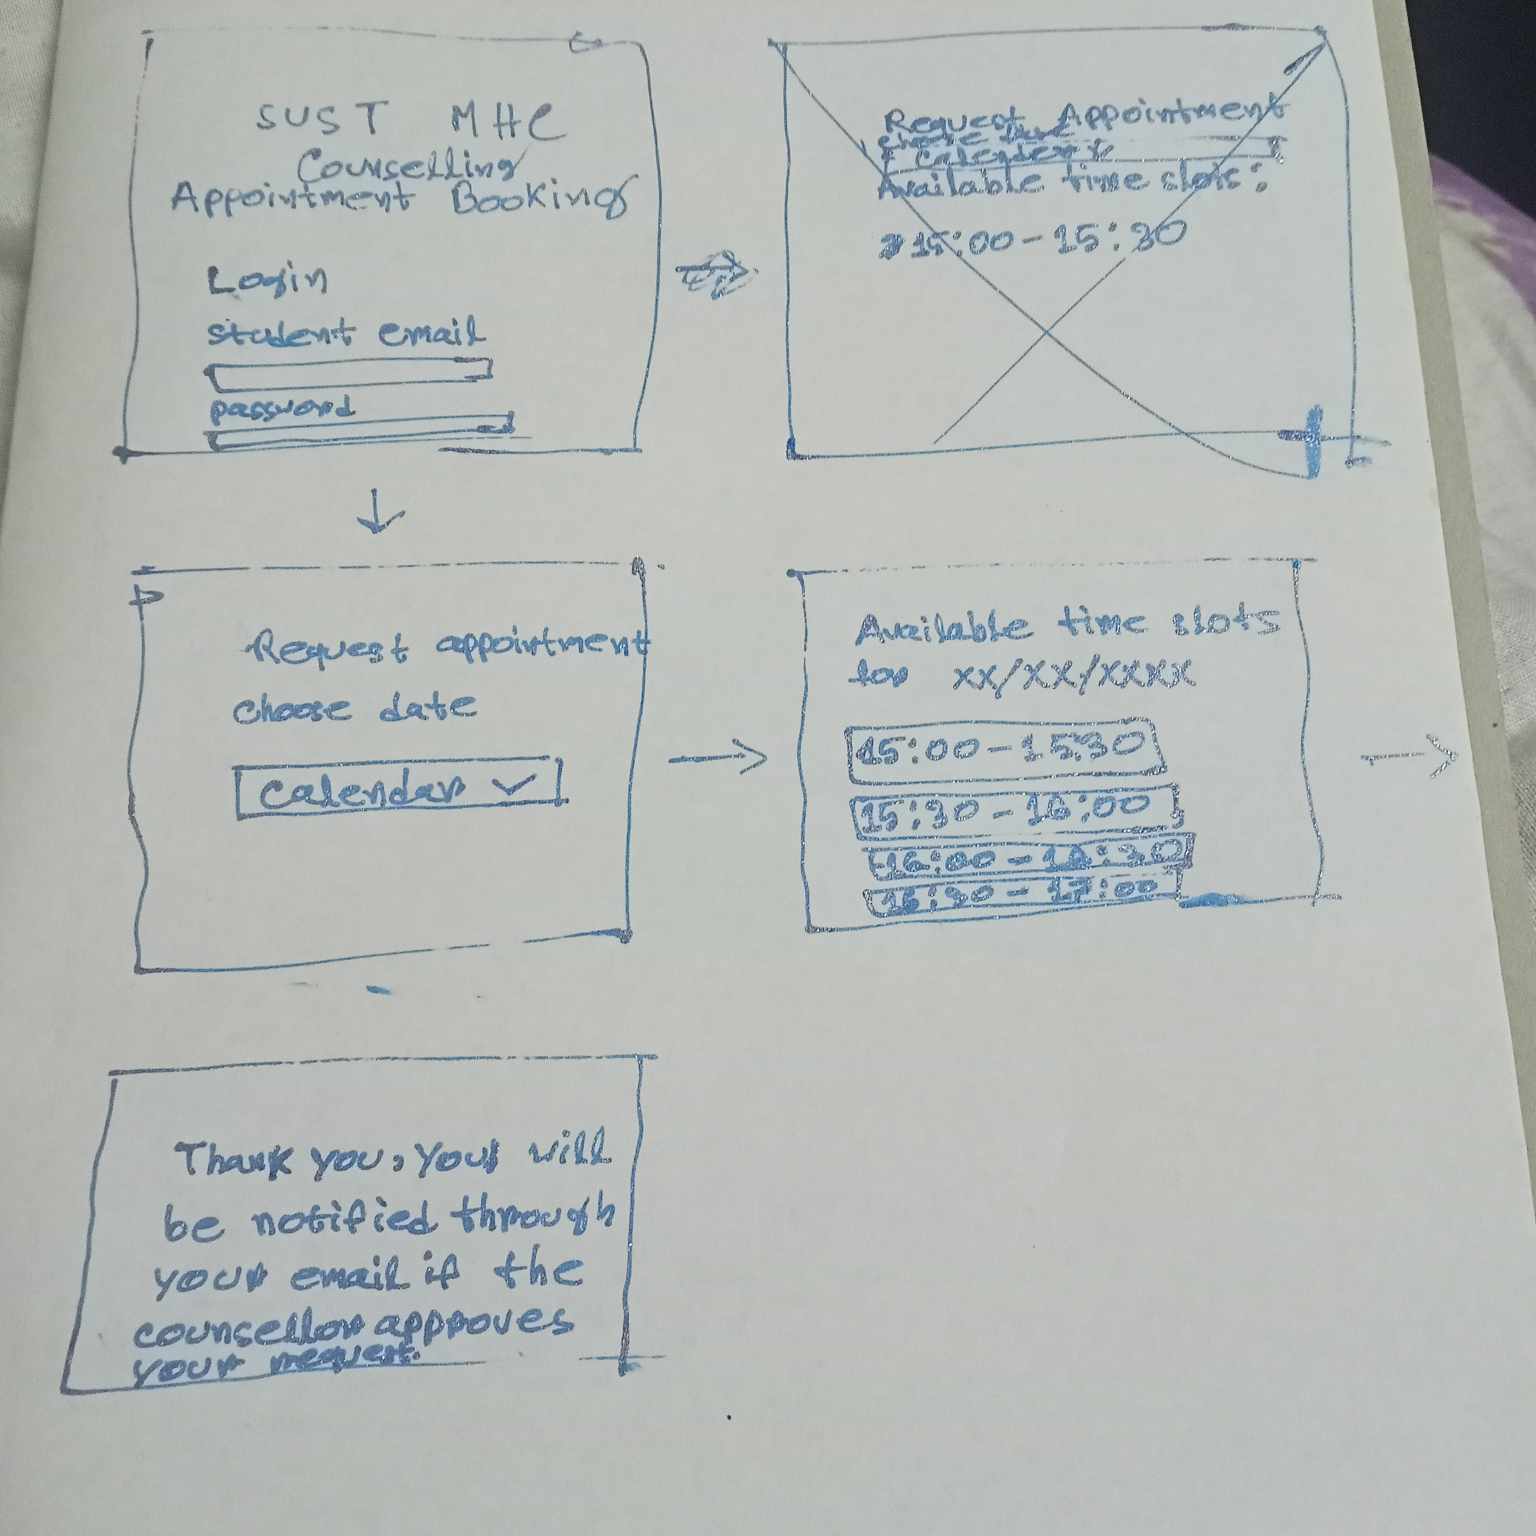 SUST MHC
Counselling
Appointment Booking
Login
student email
password
Request Appointment
choose date
Calendar
Available time slots:
15:00-15:30
Request appointment
choose date
Calendar
Available time slots
for xx/xx/xxxx
15:00-15:30
15:30-16:00
16:00-16:30
16:30-17:00
Thank you, you will
be notified through
your email if the
counsellor approves
your request.